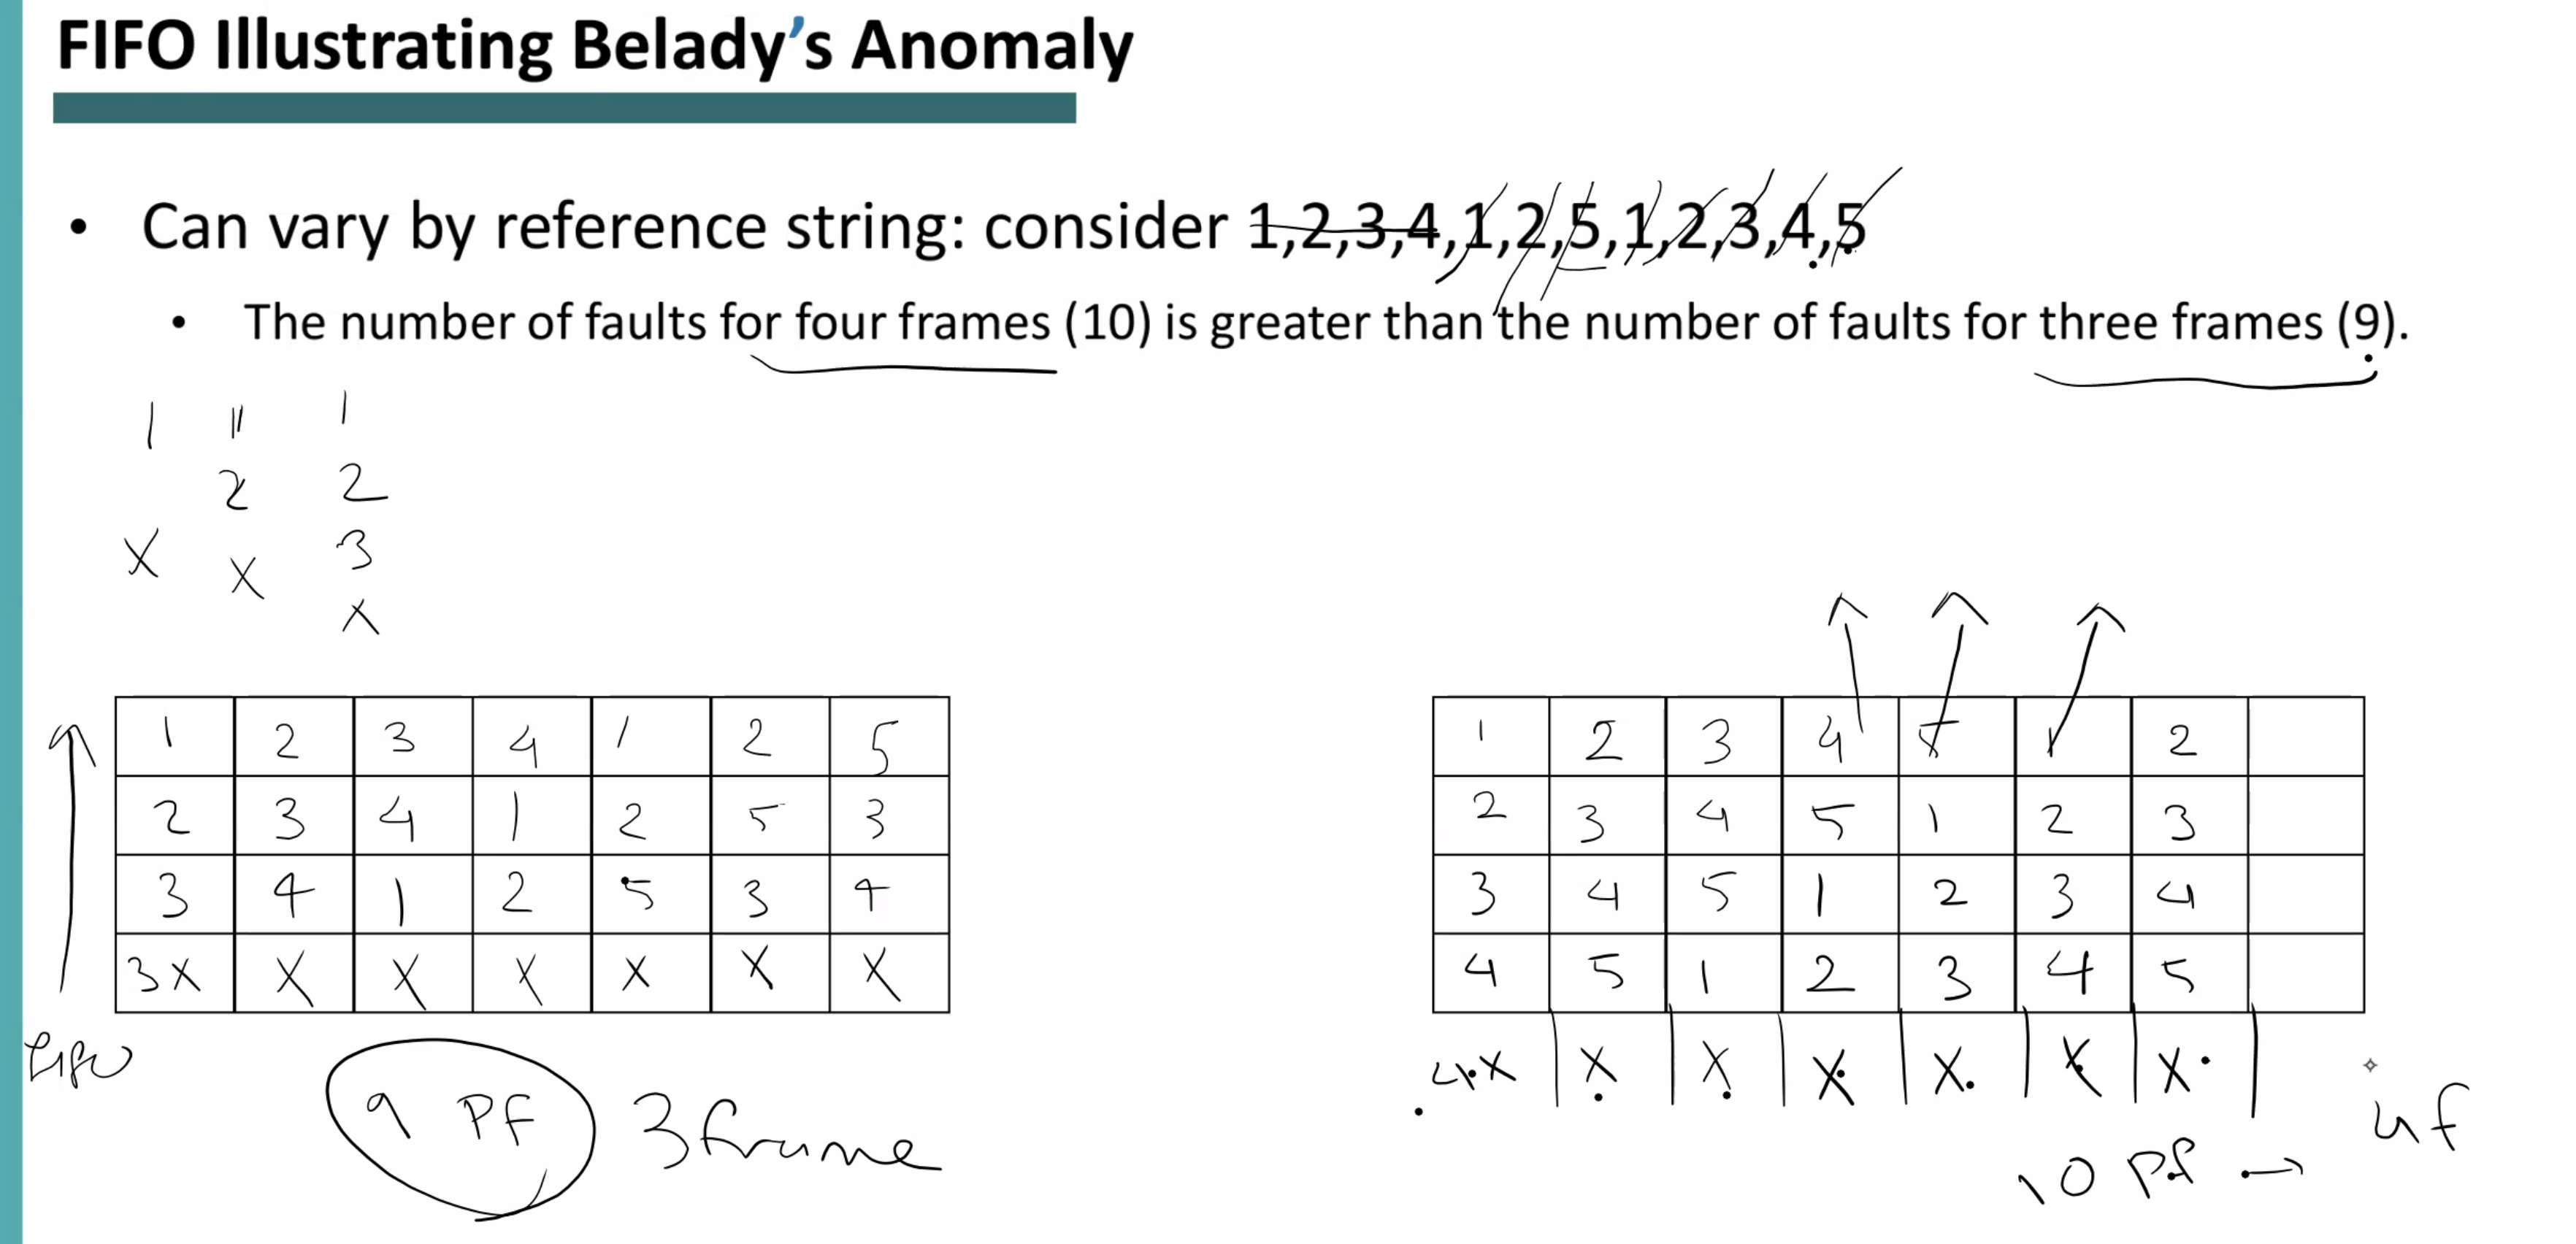 FIFO Illustrating Belady’s Anomaly
• Can vary by reference string: consider 1,2,3,4,1,2,5,1,2,3,4,5
• The number of faults for four frames (10) is greater than the number of faults for three frames (9).
1 11 1
2 2
X X 3
X
1 2 3 4 1 2 5
2 3 4 1 2 5 3
3 4 1 2 5 3 4
3X X X X X X X
9 PF 3 frame
1 2 3 4 5 1 2
2 3 4 5 1 2 3
3 4 5 1 2 3 4
4 5 1 2 3 4 5
4X X X X X X X
4f
10 Pf →